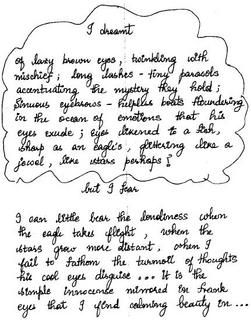 I dreamt
of lazy brown eyes, twinkling with
mischief; long lashes - tiny parasols
accentuating the mystery they hold;
sinuous eyebrows - helpless boats floundering
in the ocean of emotions that his
eyes exude; eyes likened to a fish,
sharp as an eagle's, glittering like a
jewel, like stars perhaps!
but I fear
I can little bear the loneliness when
the eagle takes flight, when the
stars grow more distant, when I
fail to fathom the turmoil of thoughts
his cool eyes disguise... It is the
simple innocence mirrored in frank
eyes that I find calming beauty in...